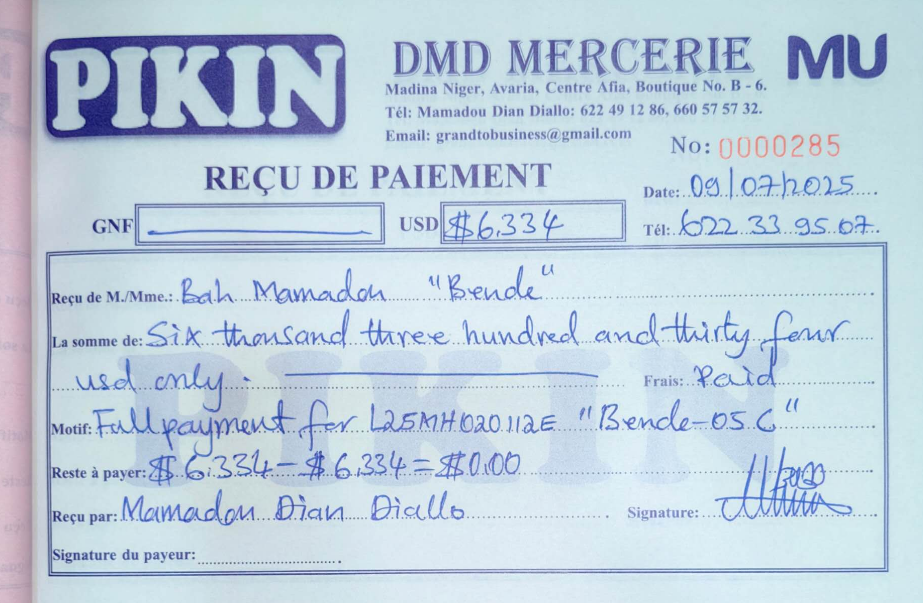 PIKIN
DMD MERCERIE
MU
Madina Niger, Avaria, Centre Afia, Boutique No. B - 6.
Tél: Mamadou Dian Diallo: 622 49 12 86, 660 57 57 32.
Email: grandtobusiness@gmail.com
No: 0000285
REÇU DE PAIEMENT
Date: 09/07/2025
GNF
USD $6,334
Tél: 622 33 95 07
Reçu de M./Mme.: Bah Mamadou "Bende"
La somme de: Six thousand three hundred and thirty four
usd only. Frais: Paid
Motif: Full payment for L25MH020112E "Bende-05 C"
Reste à payer: $ 6,334 - $ 6,334 = $0.00
Reçu par: Mamadou Dian Diallo Signature:
Signature du payeur:
PIKIN